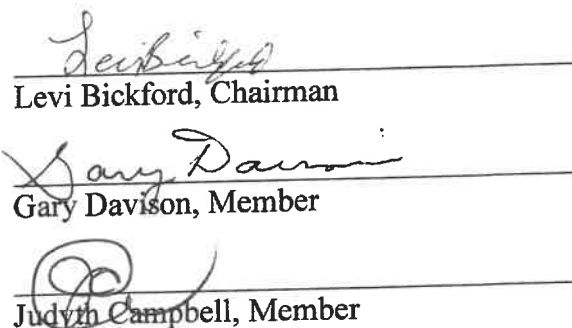 Levi Bickford
Levi Bickford, Chairman
Gary Davison
Gary Davison, Member
JC
Judyth Campbell, Member